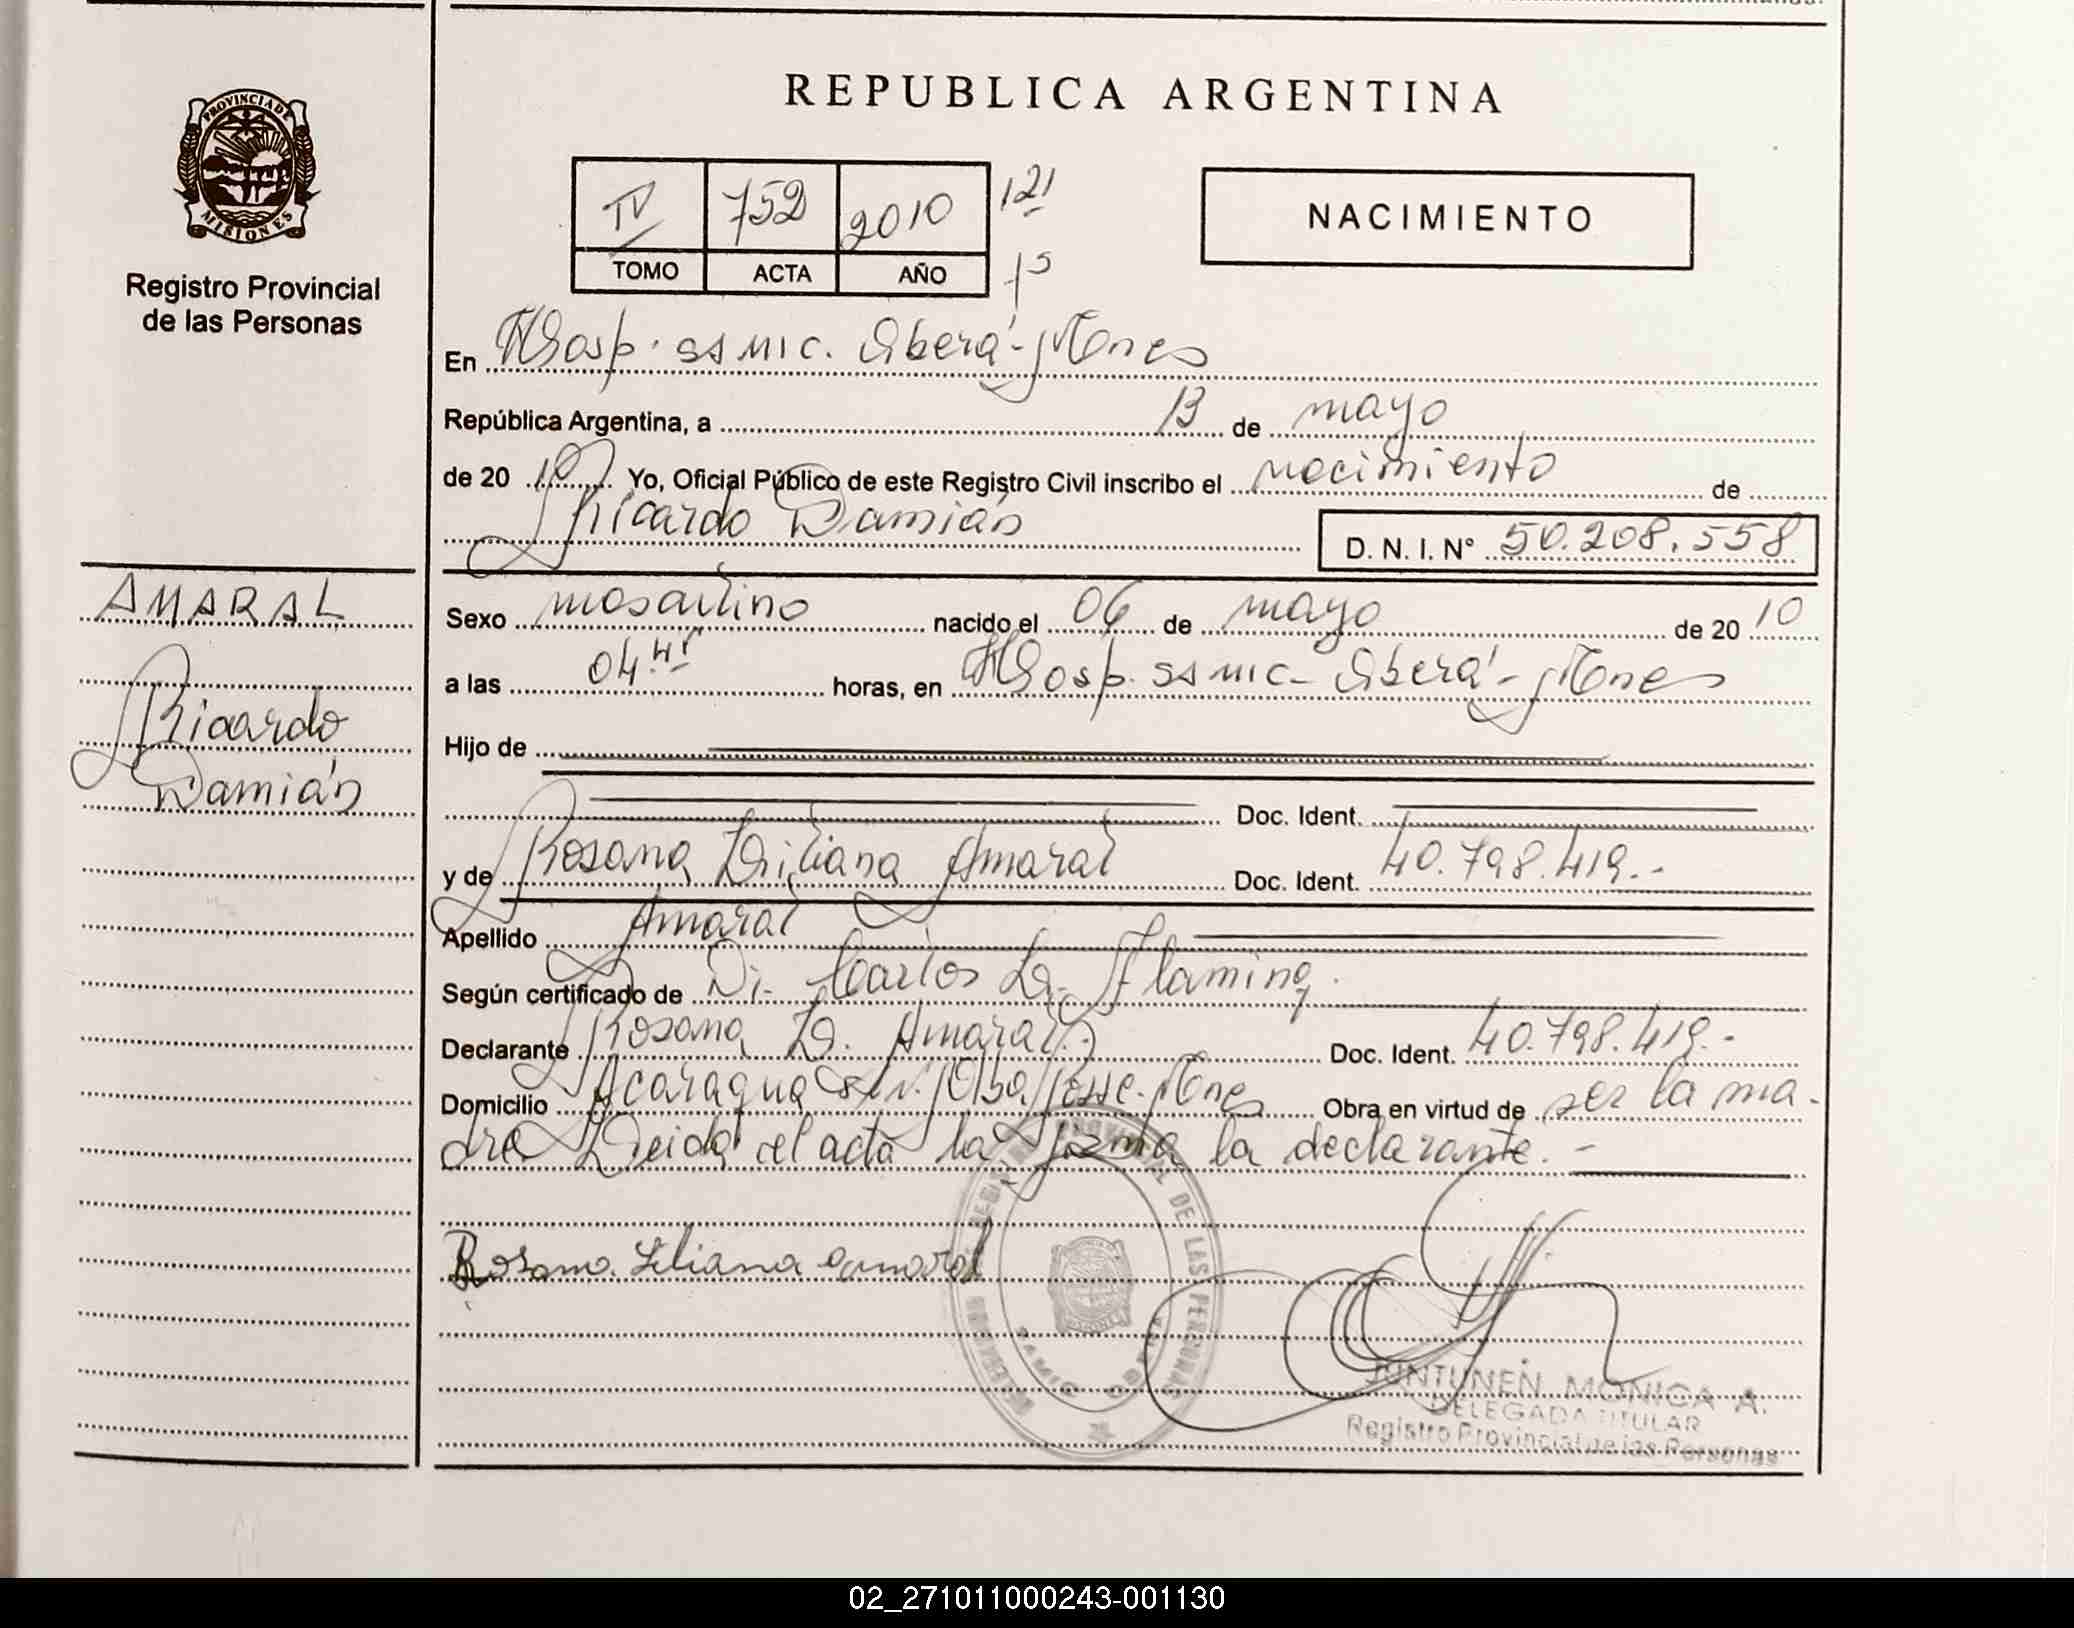 REPUBLICA ARGENTINA
PROVINCIA DE
MISIONES
Registro Provincial
de las Personas
IV 752 2010 121
TOMO ACTA AÑO
NACIMIENTO
En Hosp. SSMIC. Oberá - Mnes
República Argentina, a 13 de mayo
de 20 10 Yo, Oficial Público de este Registro Civil inscribo el nacimiento de
Ricardo Damián D. N. I. N° 50.208.558
AMARAL
Ricardo
Damián
Sexo masculino nacido el 06 de mayo de 20 10
a las 04.45 horas, en Hosp. SSMIC - Oberá - Mnes
Hijo de
Doc. Ident.
y de Rosana Liliana Amaral Doc. Ident. 40.798.419.-
Apellido Amaral
Según certificado de Dr. Carlos Fleming.
Declarante Rosana L. Amaral.- Doc. Ident. 40.798.419.-
Domicilio Acaragua Mnes Obra en virtud de ser la ma-
dre Leida el acta la firma la declarante.-
Rosana Liliana Amaral
REGISTRO PROVINCIAL DE LAS PERSONAS
JUNTUNEN MONICA A.
DELEGADA TITULAR
Registro Provincial de las Personas
02_271011000243-001130